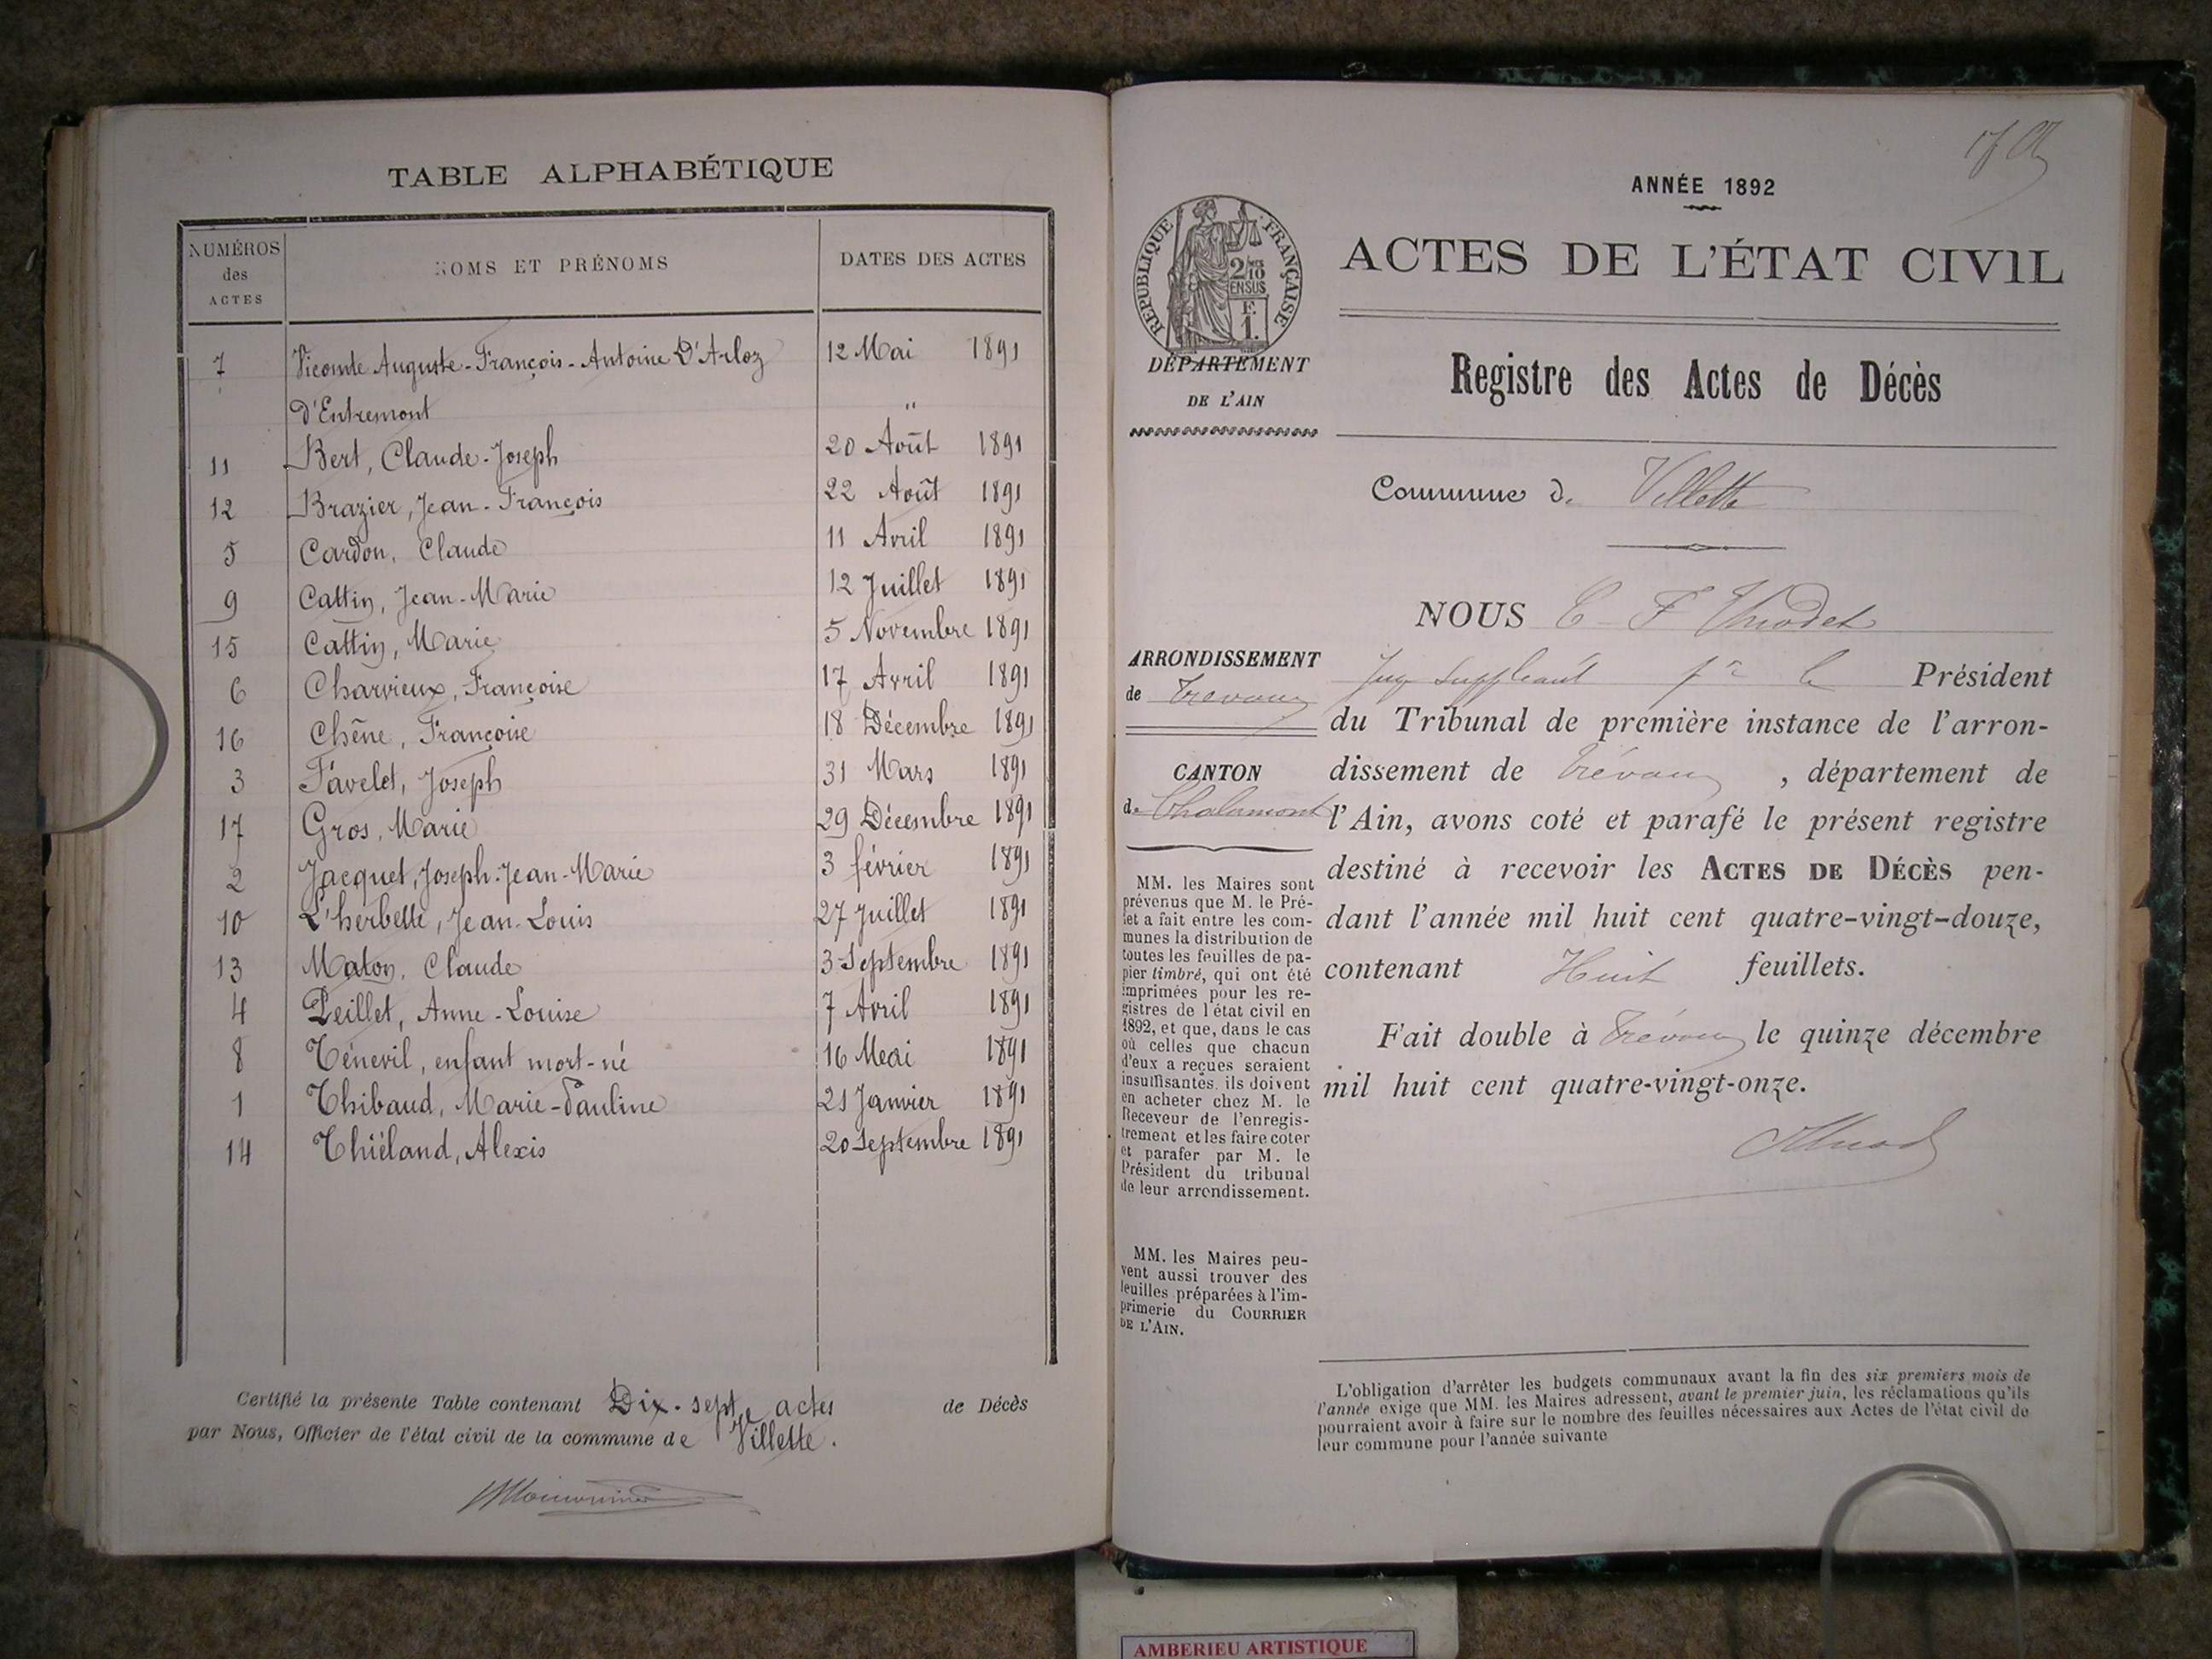 TABLE ALPHABÉTIQUE
NUMÉROS des ACTES | NOMS ET PRÉNOMS | DATES DES ACTES
7 Vicomte Auguste-François-Antoine D'Arloz 12 Mai 1891
d'Entremont "
11 Bert, Claude-Joseph 20 Août 1891
12 Brazier, Jean-François 22 Août 1891
5 Cardon, Claude 11 Avril 1891
9 Cattin, Jean-Marie 12 Juillet 1891
15 Cattin, Marie 5 Novembre 1891
6 Charvieux, Françoise 17 Avril 1891
16 Chêne, Françoise 18 Décembre 1891
3 Favelet, Joseph 31 Mars 1891
17 Gros, Marie 29 Décembre 1891
2 Jacquet, Joseph-Jean-Marie 3 février 1891
10 L'herbette, Jean-Louis 27 Juillet 1891
13 Maton, Claude 3 Septembre 1891
4 Peillet, Anne-Louise 7 Avril 1891
8 Ténevil, enfant mort-né 16 Mai 1891
1 Thibaud, Marie-Pauline 21 Janvier 1891
14 Thiéland, Alexis 20 Septembre 1891
Certifié la présente Table contenant Dix-sept actes de Décès
par Nous, Officier de l'état civil de la commune de Villette.
ANNÉE 1892
RÉPUBLIQUE FRANÇAISE
2/10
EN SUS
F.
1.
ACTES DE L'ÉTAT CIVIL
DÉPARTEMENT
DE L'AIN
Registre des Actes de Décès
Commune de Villette
ARRONDISSEMENT
de Trévoux
CANTON
de Chalamont
MM. les Maires sont
prévenus que M. le Pré-
fet a fait entre les com-
munes la distribution de
toutes les feuilles de pa-
pier timbré, qui ont été
imprimées pour les re-
gistres de l'état civil en
1892, et que, dans le cas
où celles que chacun
d'eux a reçues seraient
insuffisantes, ils doivent
en acheter chez M. le
Receveur de l'enregis-
trement et les faire coter
et parafer par M. le
Président du tribunal
de leur arrondissement.
MM. les Maires peu-
vent aussi trouver des
feuilles préparées à l'im-
primerie du COURRIER
DE L'AIN.
NOUS C F
Juge suppléant pr le Président
du Tribunal de première instance de l'arron-
dissement de Trévoux, département de
l'Ain, avons coté et parafé le présent registre
destiné à recevoir les ACTES DE DÉCÈS pen-
dant l'année mil huit cent quatre-vingt-douze,
contenant Huit feuillets.
Fait double à Trévoux le quinze décembre
mil huit cent quatre-vingt-onze.
L'obligation d'arrêter les budgets communaux avant la fin des six premiers mois de
l'année exige que MM. les Maires adressent, avant le premier juin, les réclamations qu'ils
pourraient avoir à faire sur le nombre des feuilles nécessaires aux Actes de l'état civil de
leur commune pour l'année suivante
AMBERIEU ARTISTIQUE